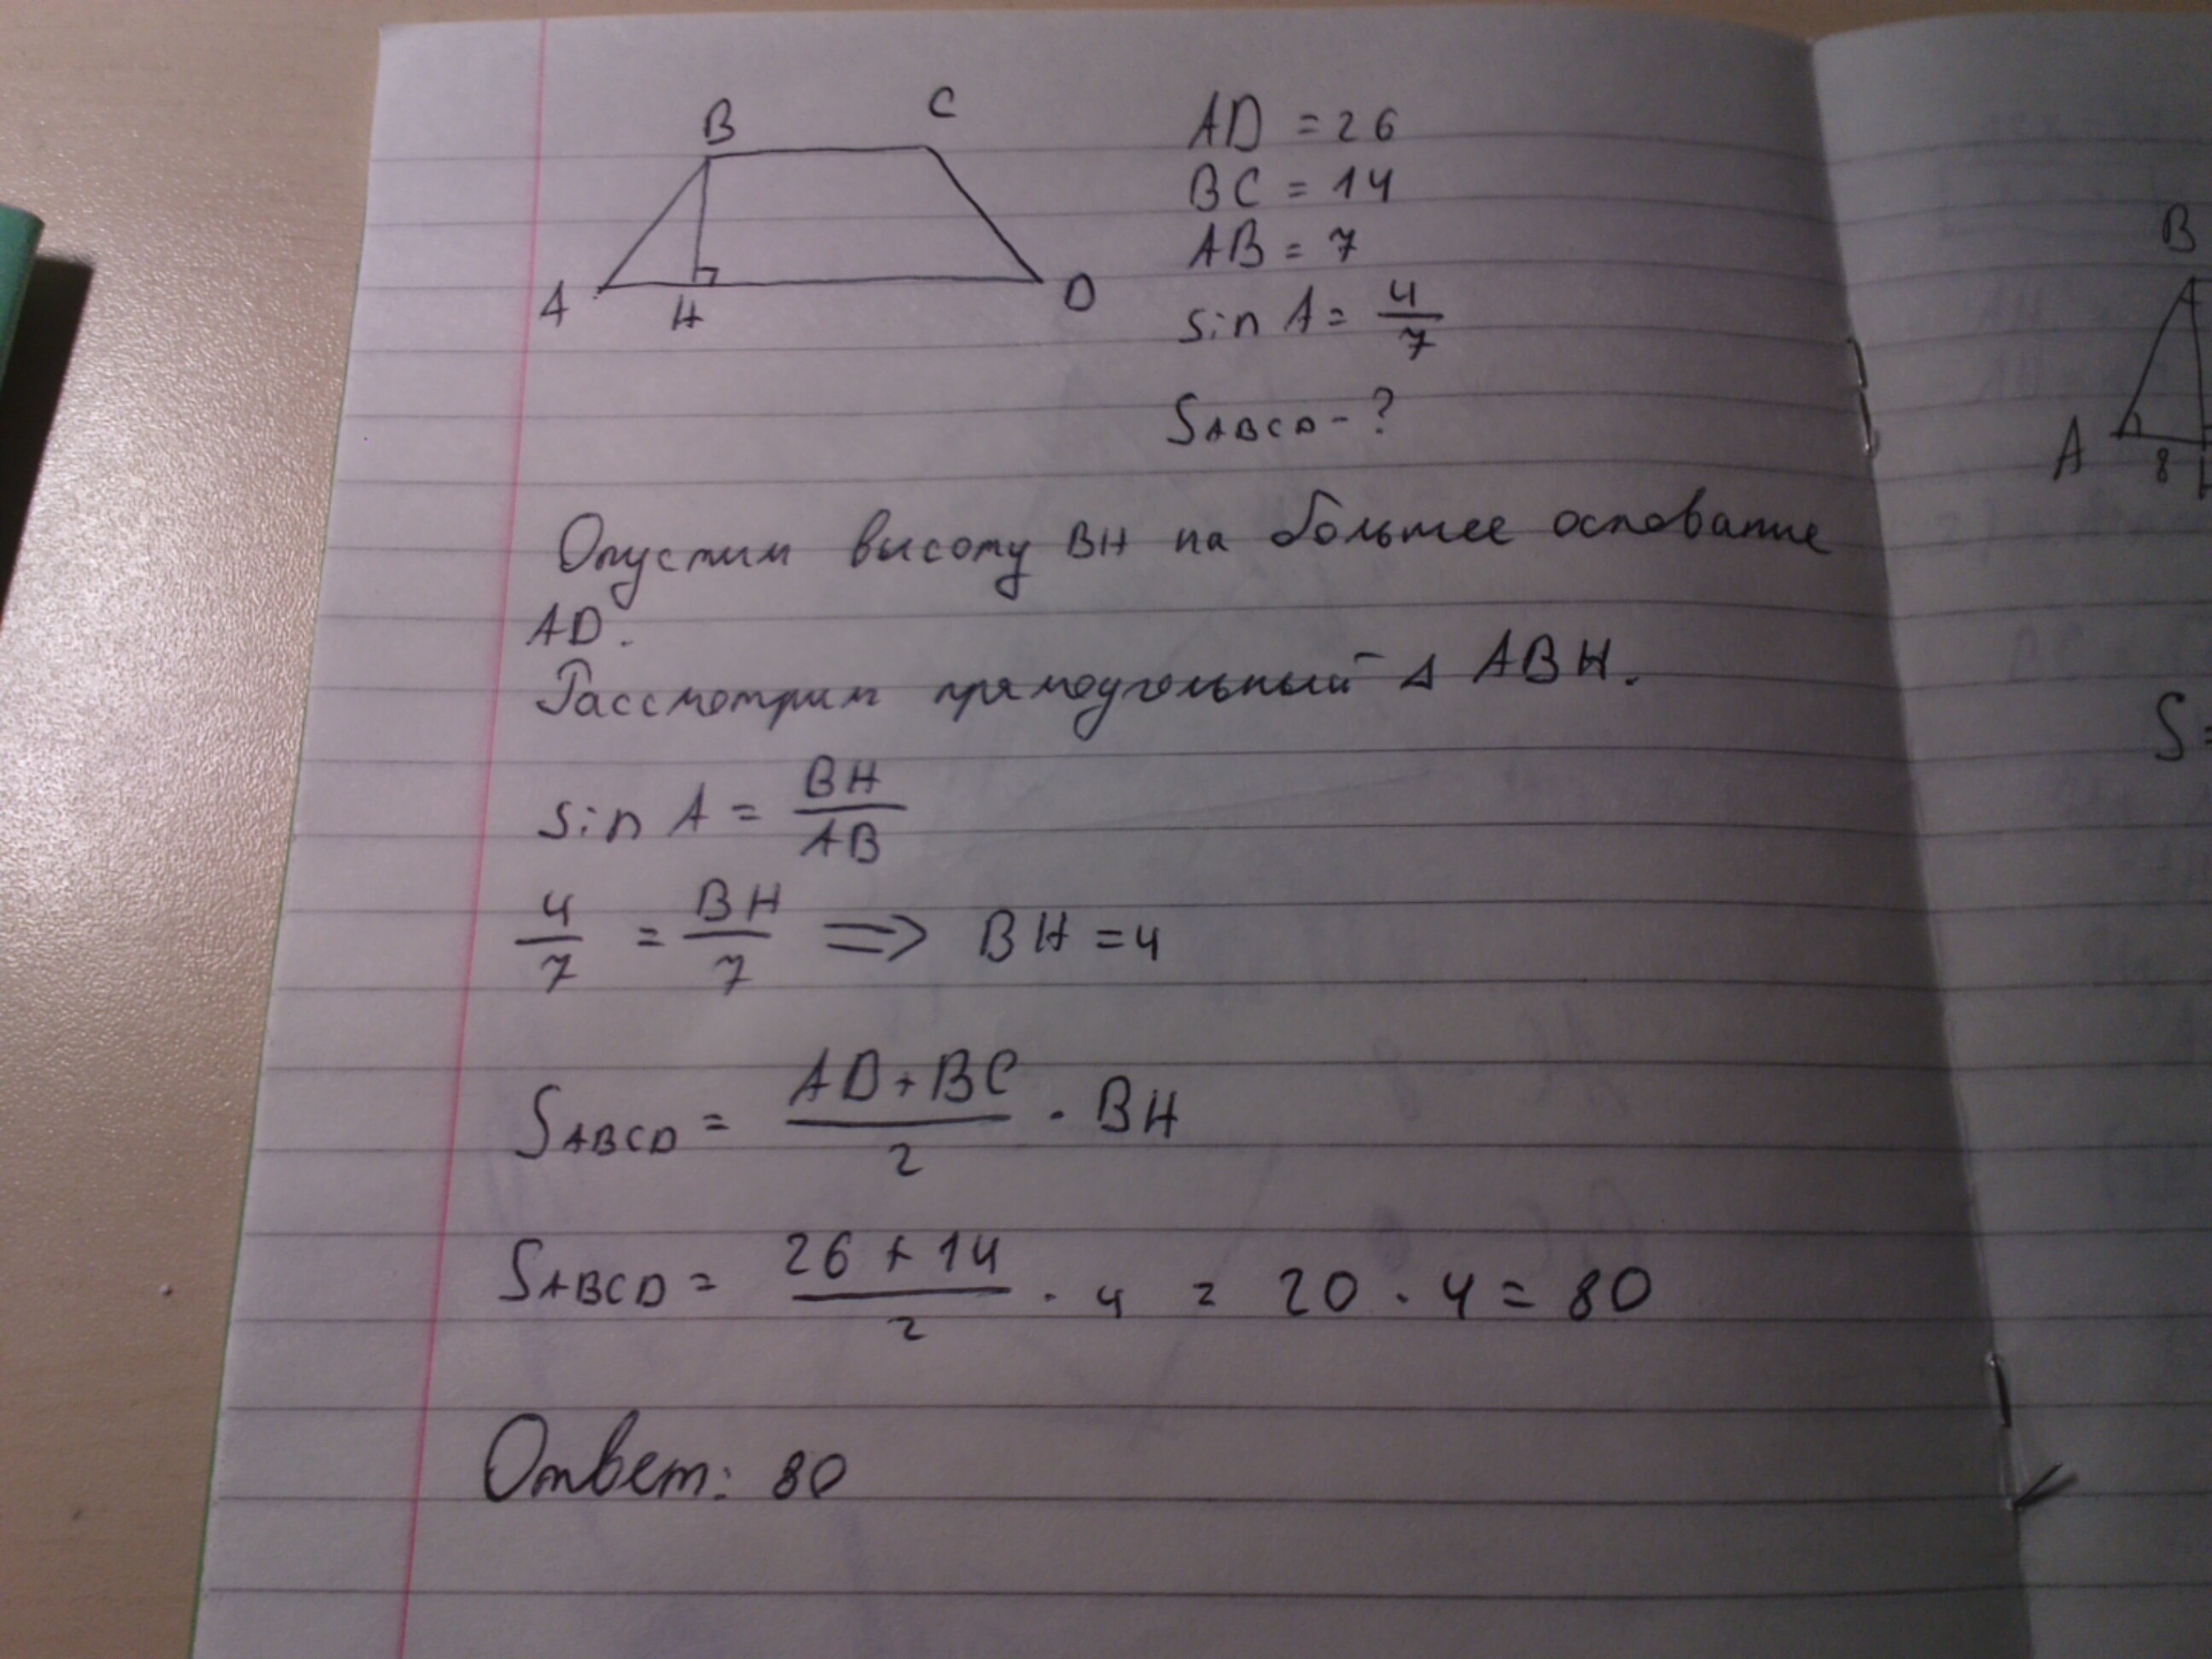 B C
A H D
AD = 26
BC = 14
AB = 7
sin A = 4/7
S ABCD - ?
Опустим высоту BH на большее основание
AD.
Рассмотрим прямоугольный Δ ABH.
sin A = BH/AB
4/7 = BH/7 => BH = 4
S ABCD = (AD+BC)/2 · BH
S ABCD = (26+14)/2 · 4 = 20 · 4 = 80
Ответ: 80
B
A 8
S=